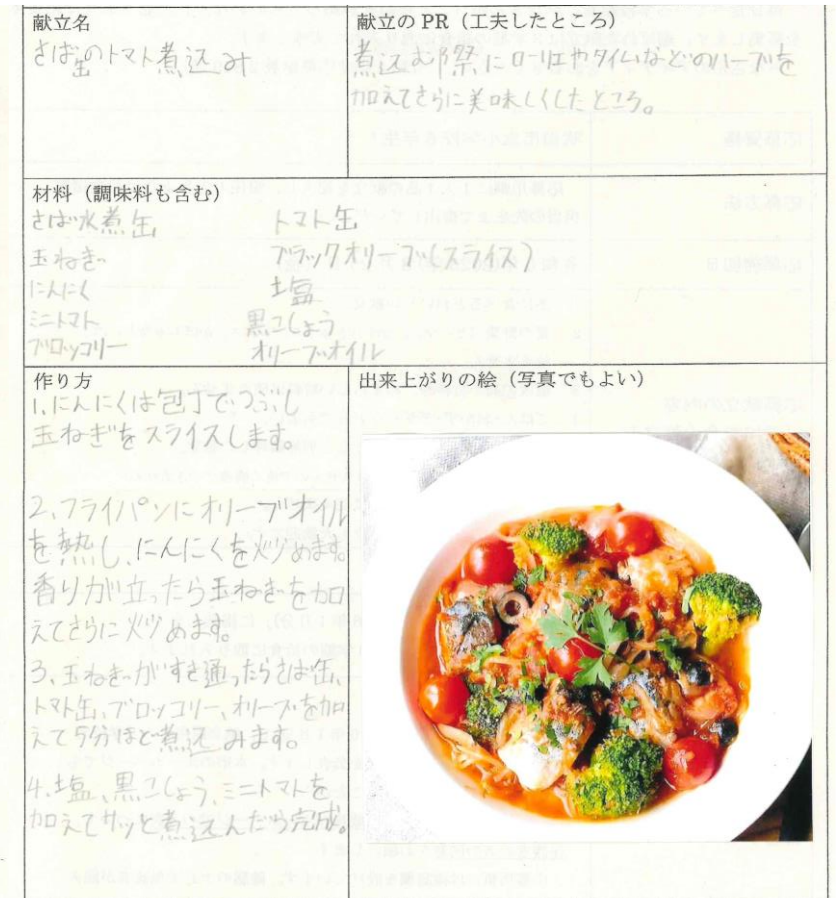 献立名
さば缶のトマト煮込み
献立のPR(工夫したところ)
煮込む際にローリエやタイムなどのハーブを
加えてさらに美味しくしたところ。
材料(調味料も含む)
さば水煮缶
玉ねぎ
にんにく
ミニトマト
ブロッコリー
トマト缶
ブラックオリーブ(スライス)
塩
黒こしょう
オリーブオイル
作り方
1、にんにくは包丁でつぶし
玉ねぎをスライスします。
2、フライパンにオリーブオイル
を熱し、にんにくを炒めます。
香りが立ったら玉ねぎを加
えてさらに炒めます。
3、玉ねぎがすき通ったらさば缶、
トマト缶、ブロッコリー、オリーブを加
えて5分ほど煮込みます。
4、塩、黒こしょう、ミニトマトを
加えてサッと煮込んだら完成。
出来上がりの絵(写真でもよい)